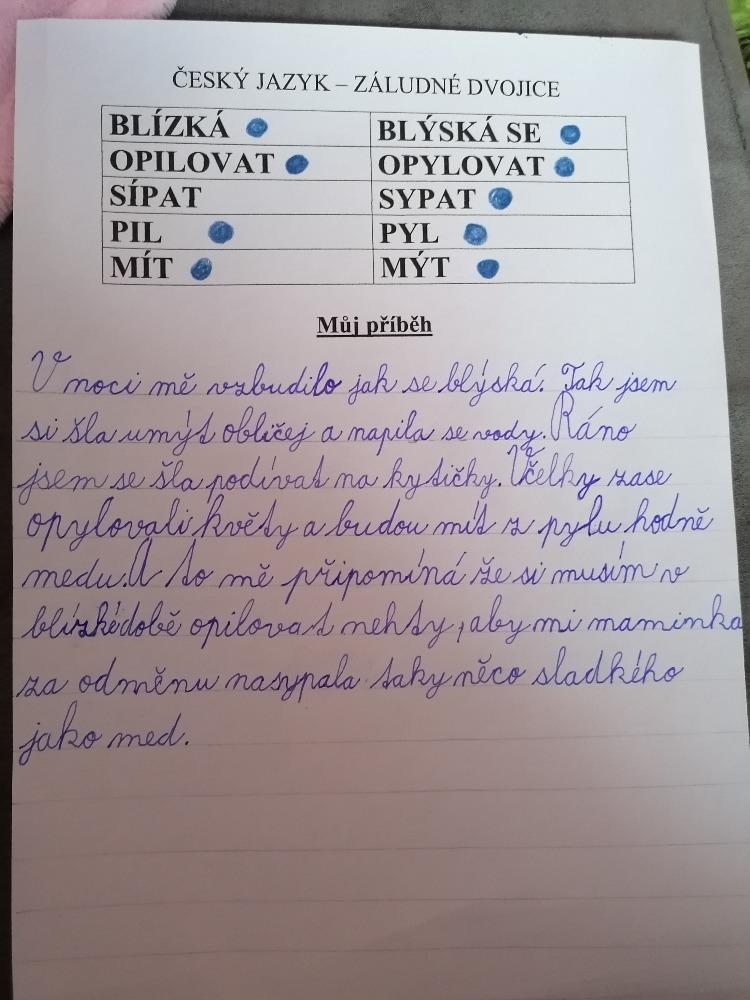 ČESKÝ JAZYK – ZÁLUDNÉ DVOJICE
BLÍZKÁ BLÝSKÁ SE
OPILOVAT OPYLOVAT
SÍPAT SYPAT
PIL PYL
MÍT MÝT
Můj příběh
V noci mě vzbudilo jak se blýská. Tak jsem
si šla umýt obličej a napila se vody. Ráno
jsem se šla podívat na kytičky. Včelky zase
opylovali květy a budou mít z pylu hodně
medu. A to mě připomíná že si musím v
blízké době opilovat nehty, aby mi maminka
za odměnu nasypala taky něco sladkého
jako med.